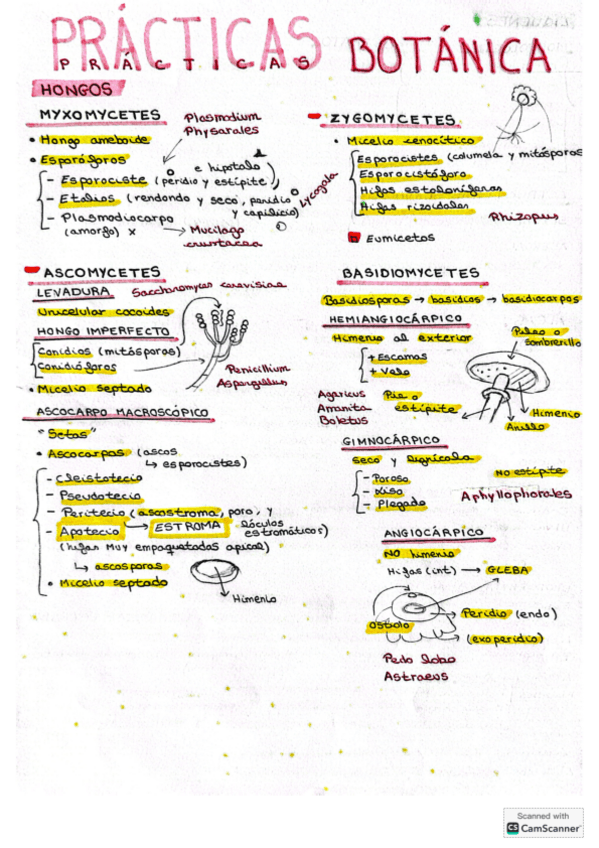 PRÁCTICAS BOTÁNICA
PRÁCTICAS
HONGOS
MYXOMYCETES
Plasmodium
Physarales
• Hongo ameboide
• Esporóforos
e hipotalo
- Esporociste (peridio y estípite)
- Etalios (rendondo y seco, peridio
y capilicio)
Lycogala
- Plasmodiocarpo
(amorfo) x → Mucilago
crustacea
ZYGOMYCETES
• Micelio cenocítico
Esporocistes (columela y mitósporas
Esporocistóforo
Hifas estoloníferas
Hifas rizoidales
Rhizopus
Eumicetos
ASCOMYCETES
LEVADURA Saccharomyces cerevisiae
Unicelular cocoides
HONGO IMPERFECTO
Conidios (mitósporas)
Conidióforos
Penicillium
Aspergillus
• Micelio septado
ASCOCARPO MACROSCÓPICO
"Setas"
• Ascocarpos (ascos
↳ esporocistes)
- Cleistotecio
- Pseudotecio
- Peritecio (ascostroma, poro, y
- Apotecio → ESTROMA - lóculos
estromáticos)
(hifas muy empaquetadas apical)
↳ ascosporas
• Micelio septado
Himenio
BASIDIOMYCETES
Basidiosporas → basidios → basidiocarpos
HEMIANGIOCÁRPICO
Himenio al exterior
Pileo o
sombrerillo
+ Escamas
+ Velo
Agaricus
Amanita
Boletus
Pie o
estípite
Himenio
Anillo
GIMNOCÁRPICO
Seco y lignícola
No estípite
- Poroso
- Liso
- Plegado
Aphyllophorales
ANGIOCÁRPICO
NO himenio
Hifas (int) → GLEBA
Ostiolo
Peridio (endo)
(exoperidio)
Pedo lobo
Astraeus
Scanned with
CS CamScanner